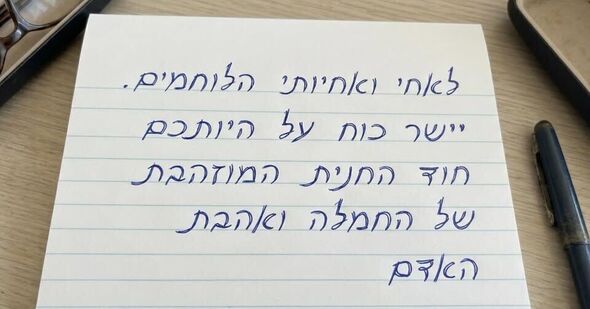 לאחי ואחיותי הלוחמים.
יישר כוח על היותכם
חוד החנית המוזהבת
של החמלה ואהבת
האדם